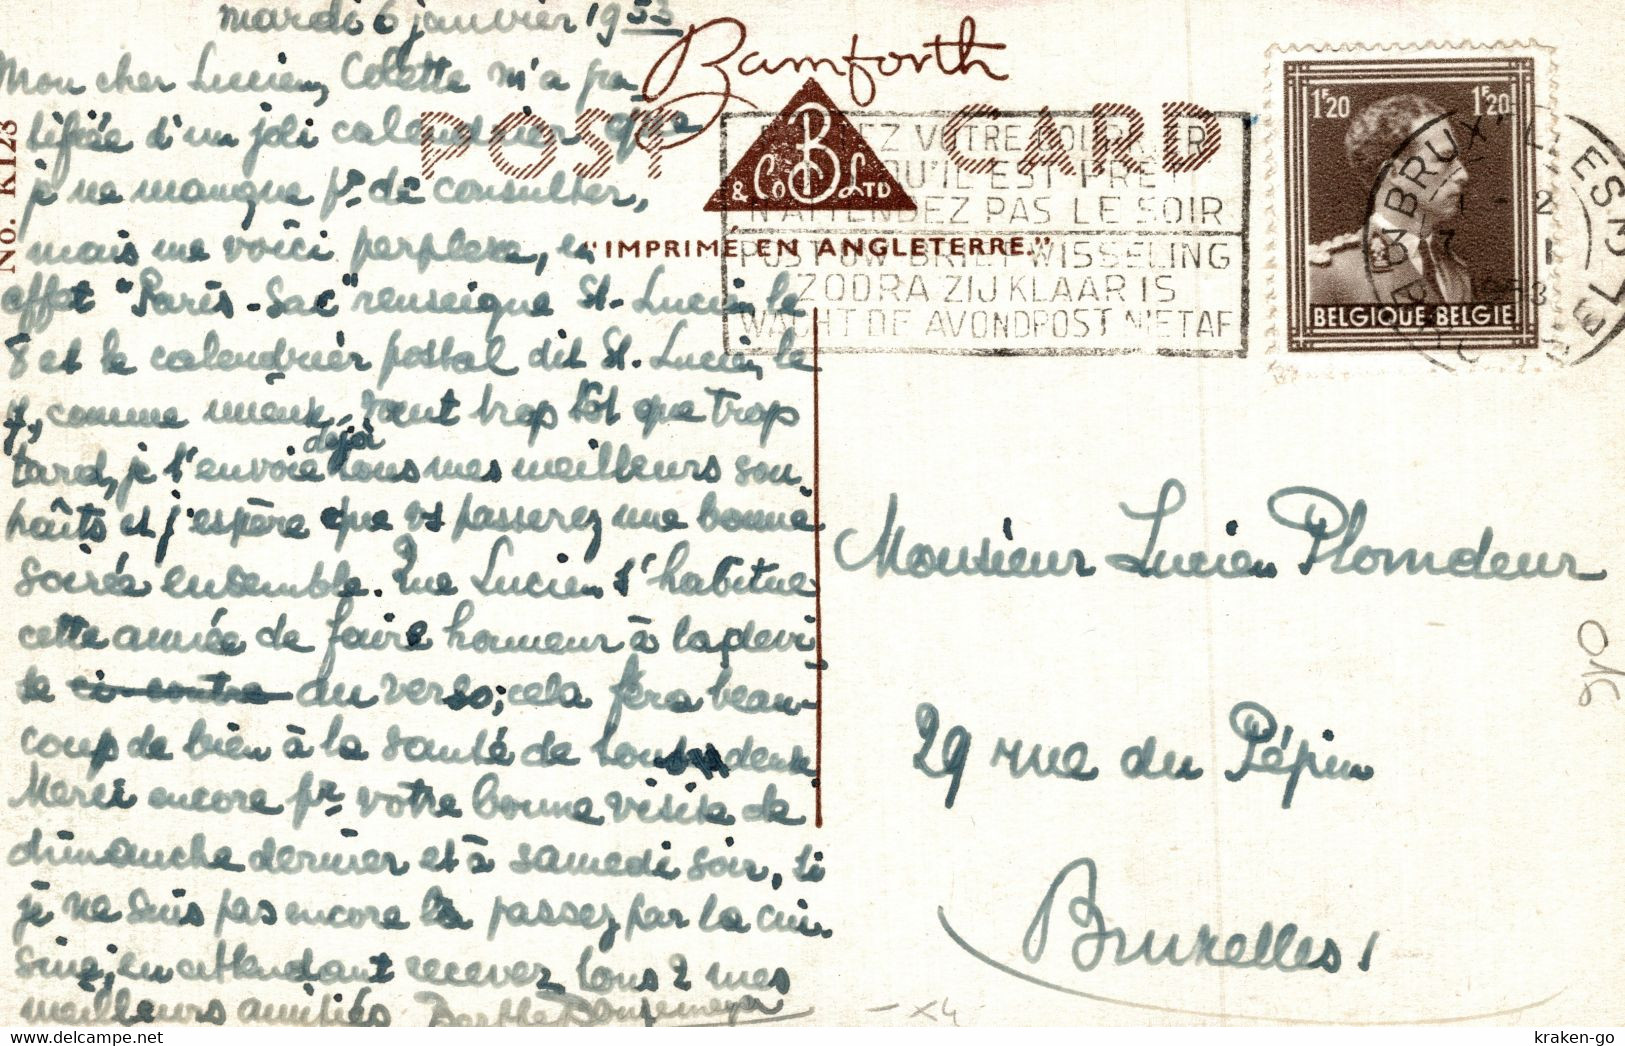 mardi 6 janvier 1953
Mon cher Lucien, Colette m'a gra-
tifiée d'un joli calendrier que
je ne manque pr. de consulter,
mais me voici perplexe, en
effet "Paris-Sac" renseigne St. Lucien le
8 et le calendrier postal dit St. Lucien le
7, comme mieux vaut trop tôt que trop
déjà
tard, je t'envoie tous mes meilleurs sou-
haits et j'espère que vs passerez une bonne
soirée ensemble. Que Lucien s'habitue
cette année de faire honneur à la devi-
se ci-contre du verso; cela fera beau-
coup de bien à la santé de tous
Merci encore pr votre bonne visite de
dimanche dernier et à samedi soir, si
je ne suis pas encore là passez par la cui-
sine, en attendant recevez tous 2 mes
meilleurs amitiés. Berthe
No. K128
Bamforth
POST CARD
B
& Co LTD
"IMPRIMÉ EN ANGLETERRE."
POSTEZ VOTRE COURRIER
DES QU'IL EST PRÊT
N'ATTENDEZ PAS LE SOIR
POST UW BRIEFWISSELING
ZODRA ZIJ KLAAR IS
WACHT DE AVONDPOST NIET AF
1F20 1F20
BELGIQUE-BELGIE
BRUXELLES
BRUSSEL
Monsieur Lucien Plomdeur
29 rue du Pépin
Bruxelles 1
- x4
kraken-go